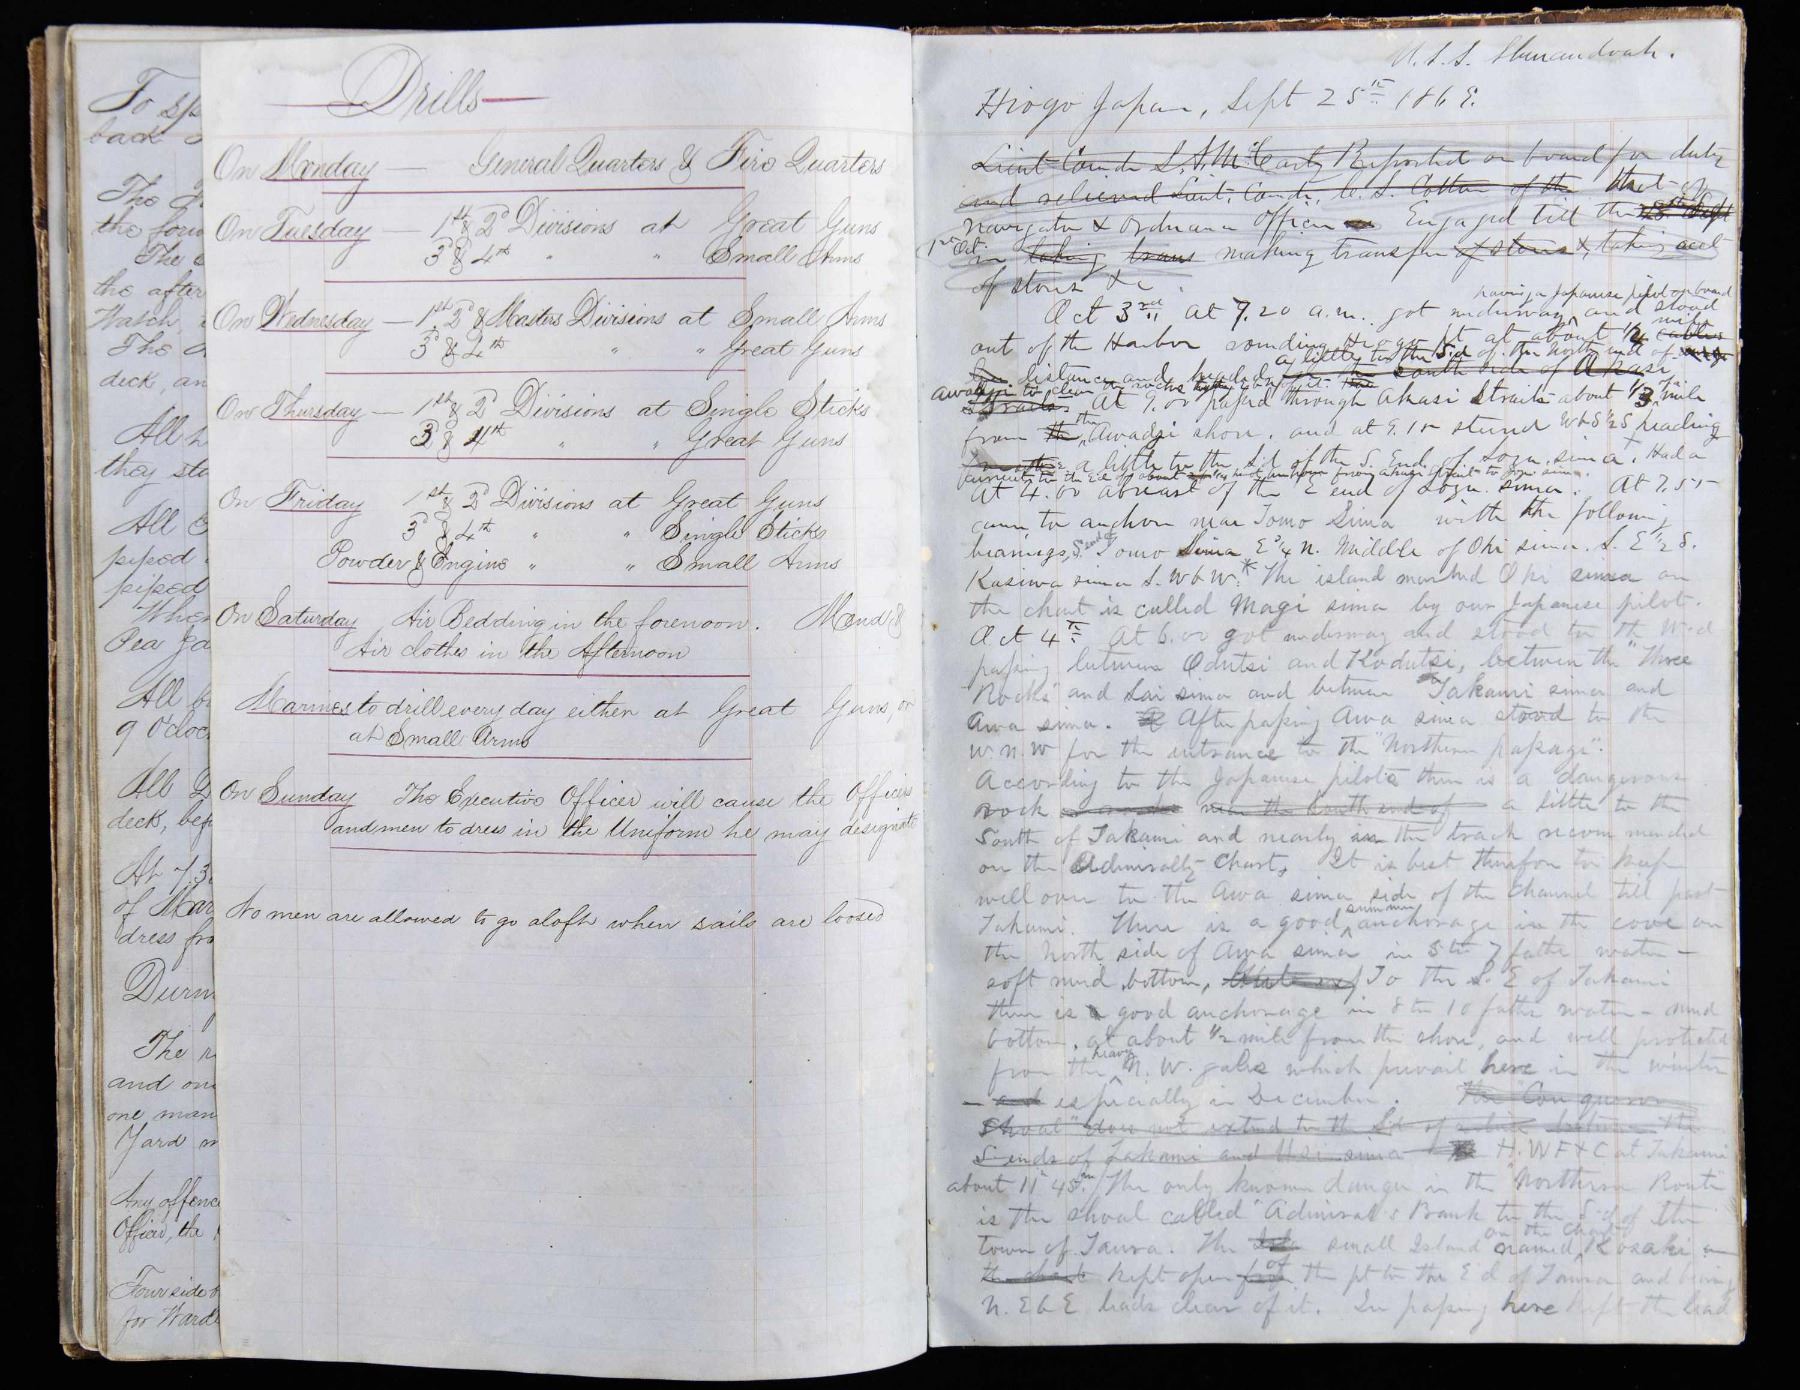 To sp
back
the forw
The
the after
Watch,
The
deck, an
All h
they sta
All
piped
piped
When
Pea Ja
All b
9 Oclock
All D
deck, bef
At 7.3
of Mar
dress fro
Durin
The
and on
one man
Yard m
Any offence
Officer, the
Four side b
for Ward
Drills
On Monday — General Quarters & Fire Quarters
On Tuesday — 1st & 2d Divisions at Great Guns
3d & 4th " " Small Arms
On Wednesday — 1st 2d & Masters Divisions at Small Arms
3d & 4th " " Great Guns
On Thursday — 1st & 2d Divisions at Single Sticks
3d & 4th " " Great Guns
On Friday 1st & 2d Divisions at Great Guns
3d & 4th " " Single Sticks
Powder & Engine " " Small Arms
On Saturday Air Bedding in the forenoon. Mend &
Air clothes in the Afternoon
Marines to drill every day either at Great Guns, or
at Small Arms
On Sunday The Executive Officer will cause the Officers
and men to dress in the Uniform he may designate
No men are allowed to go aloft when sails are loosed
U.S.S. Shenandoah.
Hiogo Japan, Sept 25th 186
Lieut Comdr S. A. McCarty Reported on board for duty
and relieved Lieut. Comdr. C. S. Cotton of the that of
navigator & Ordnance Officer Engaged till the 28th Sept
1st Oct
in taking trans making transfer of stores & taking acct
of stores &c.
having a Japanese pilot on board
Oct 3rd at 7.20 a.m. got underway and stood
out of the Harbor rounding Hiogo Pt at about 1/2 mile cables
a little to the Sd of the north end of
distance and headed for the South side of Akasi
Straits At 9.00 passed through Akasi Straits about 1/3 mile
from the Awadsi shore. and at 9.15 steered WbS 1/2 S heading
a little to the Sd of the S. End of Sozu sima. Had a
At 4.00 abreast of the E end of Sozu sima. At 7.55
came to anchor near Tomo Sima with the following
bearings, S. end of Tomo Sima E 3/4 N. Middle of Oki sima. S. E 1/2 S.
Kasiwa sima S. W b W. * The island marked Oki sima on
the chart is called Magi sima by our Japanese pilot.
Oct 4th At 6.00 got underway and stood to the Wd
passing between Odutsi and Kodutsi, between the "Three
Rocks" and Sai sima and between Takami sima and
Awa sima. After passing Awa sima stood to the
W N W for the entrance to the "Northern passage".
According to the Japanese pilots there is a dangerous
rock near the South end of a little to the
South of Takami and nearly in the track recommended
on the Admiralty Chart, It is best therefore to keep
well over to the Awa sima side of the channel till past
Takami. There is a good summer anchorage in the cove on
the North side of Awa sima in 5 to 7 faths water —
soft mud bottom, To the S. E of Takami
there is a good anchorage in 8 to 10 faths water — mud
bottom, at about 1/2 mile from the shore, and well protected
from the heavy N. W. gales which prevail here in the winter
— and especially in December. The "Conqueror
Shoal" does not extend to the Sd of a line between the
S ends of Takami and Usi sima H. W F & C at Takami
about 11h 45m. The only known danger in the "Northern Route"
is the shoal called "Admiral's Bank to the Sd of the
town of Taura. The small Island named on the chart Kosaki
the chart kept open of the pt to the Ed of Taura and bearing
N. E b E leads clear of it. In passing here kept the lead